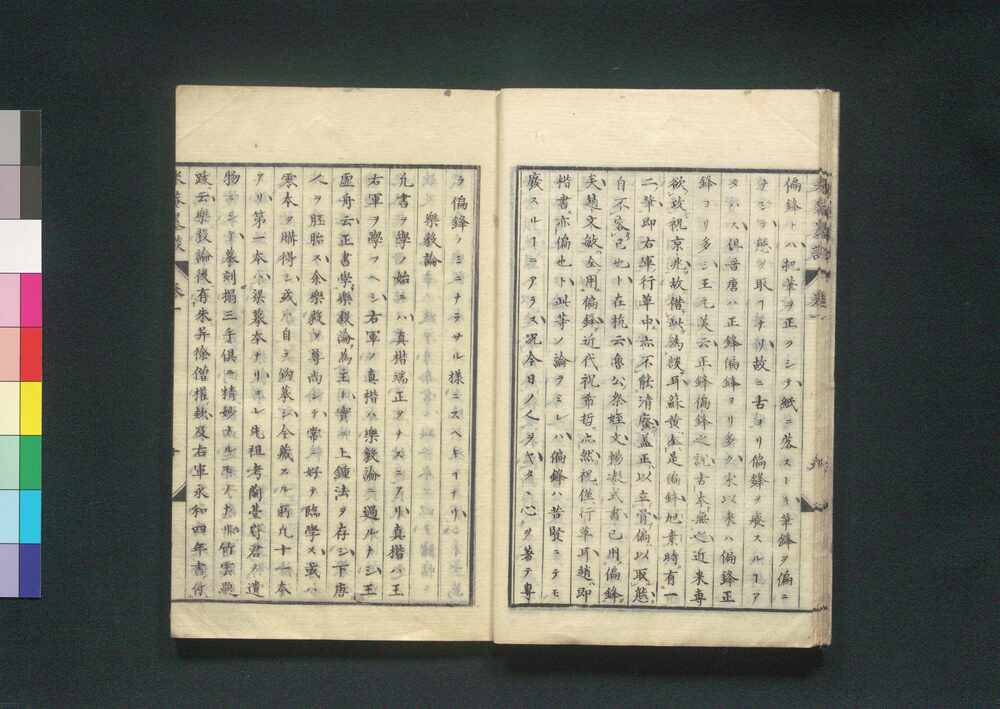 偏鋒トハ把筆ヲ正フシテ紙ニ落ストキ筆鋒ヲ偏ニ
ナシテ態ヲ取フナリ故ニ古ヨリ偏鋒ヲ癈スルーア
タハス俱晋唐ハ正鋒偏鋒ヨリ多ク宋以来ハ偏鋒正
鋒ヨリ多シ王元美云正鋒偏鋒之説古本無之近来専
欲攻祝京兆故借此為談耳蘇黄全是偏鋒旭素時有一
二筆即右軍行草中亦不能清廢蓋正以立骨偏以取態
自不容已也ト在杭云魯公祭姪文揚凝式書已用偏鋒
矣趙文敏全用偏鋒近代祝希哲亦然祝僅行草耳趙即
楷書亦偏也ト此等ノ論ヲミレハ偏鋒ハ昔賢ニテモ
廢スルーニアラス况今日ノ人ヲヤタヽ心ヲ著テ専
ラ偏鋒ノミニナラサル様ニスヘキーナリ
樂毅論
凢書ヲ學ノ始ニハ真楷端正ヲナスニアリ真楷ハ王
右軍ヲ學フヘシ右軍ノ真楷ハ樂毅論ニ過ルナシ王
虛舟云正書學樂毅論為主ト實ニ上鍾法ヲ存シ下唐
人ヲ胚胎ス余樂毅ヲ尊尚シテ常ニ好テ臨學ス或ハ
真本ヲ購得シ或ハ自ラ鈎摹シ全蔵スル所九十一本
アリ第一本ハ梁摹本ナリコレ先祖考蘭臺府君ノ遺
物ニシテ摹刻搨三手俱ニ精妙ナル
跋云樂毅論後有朱异徐僧權欵及右軍永和四年書付